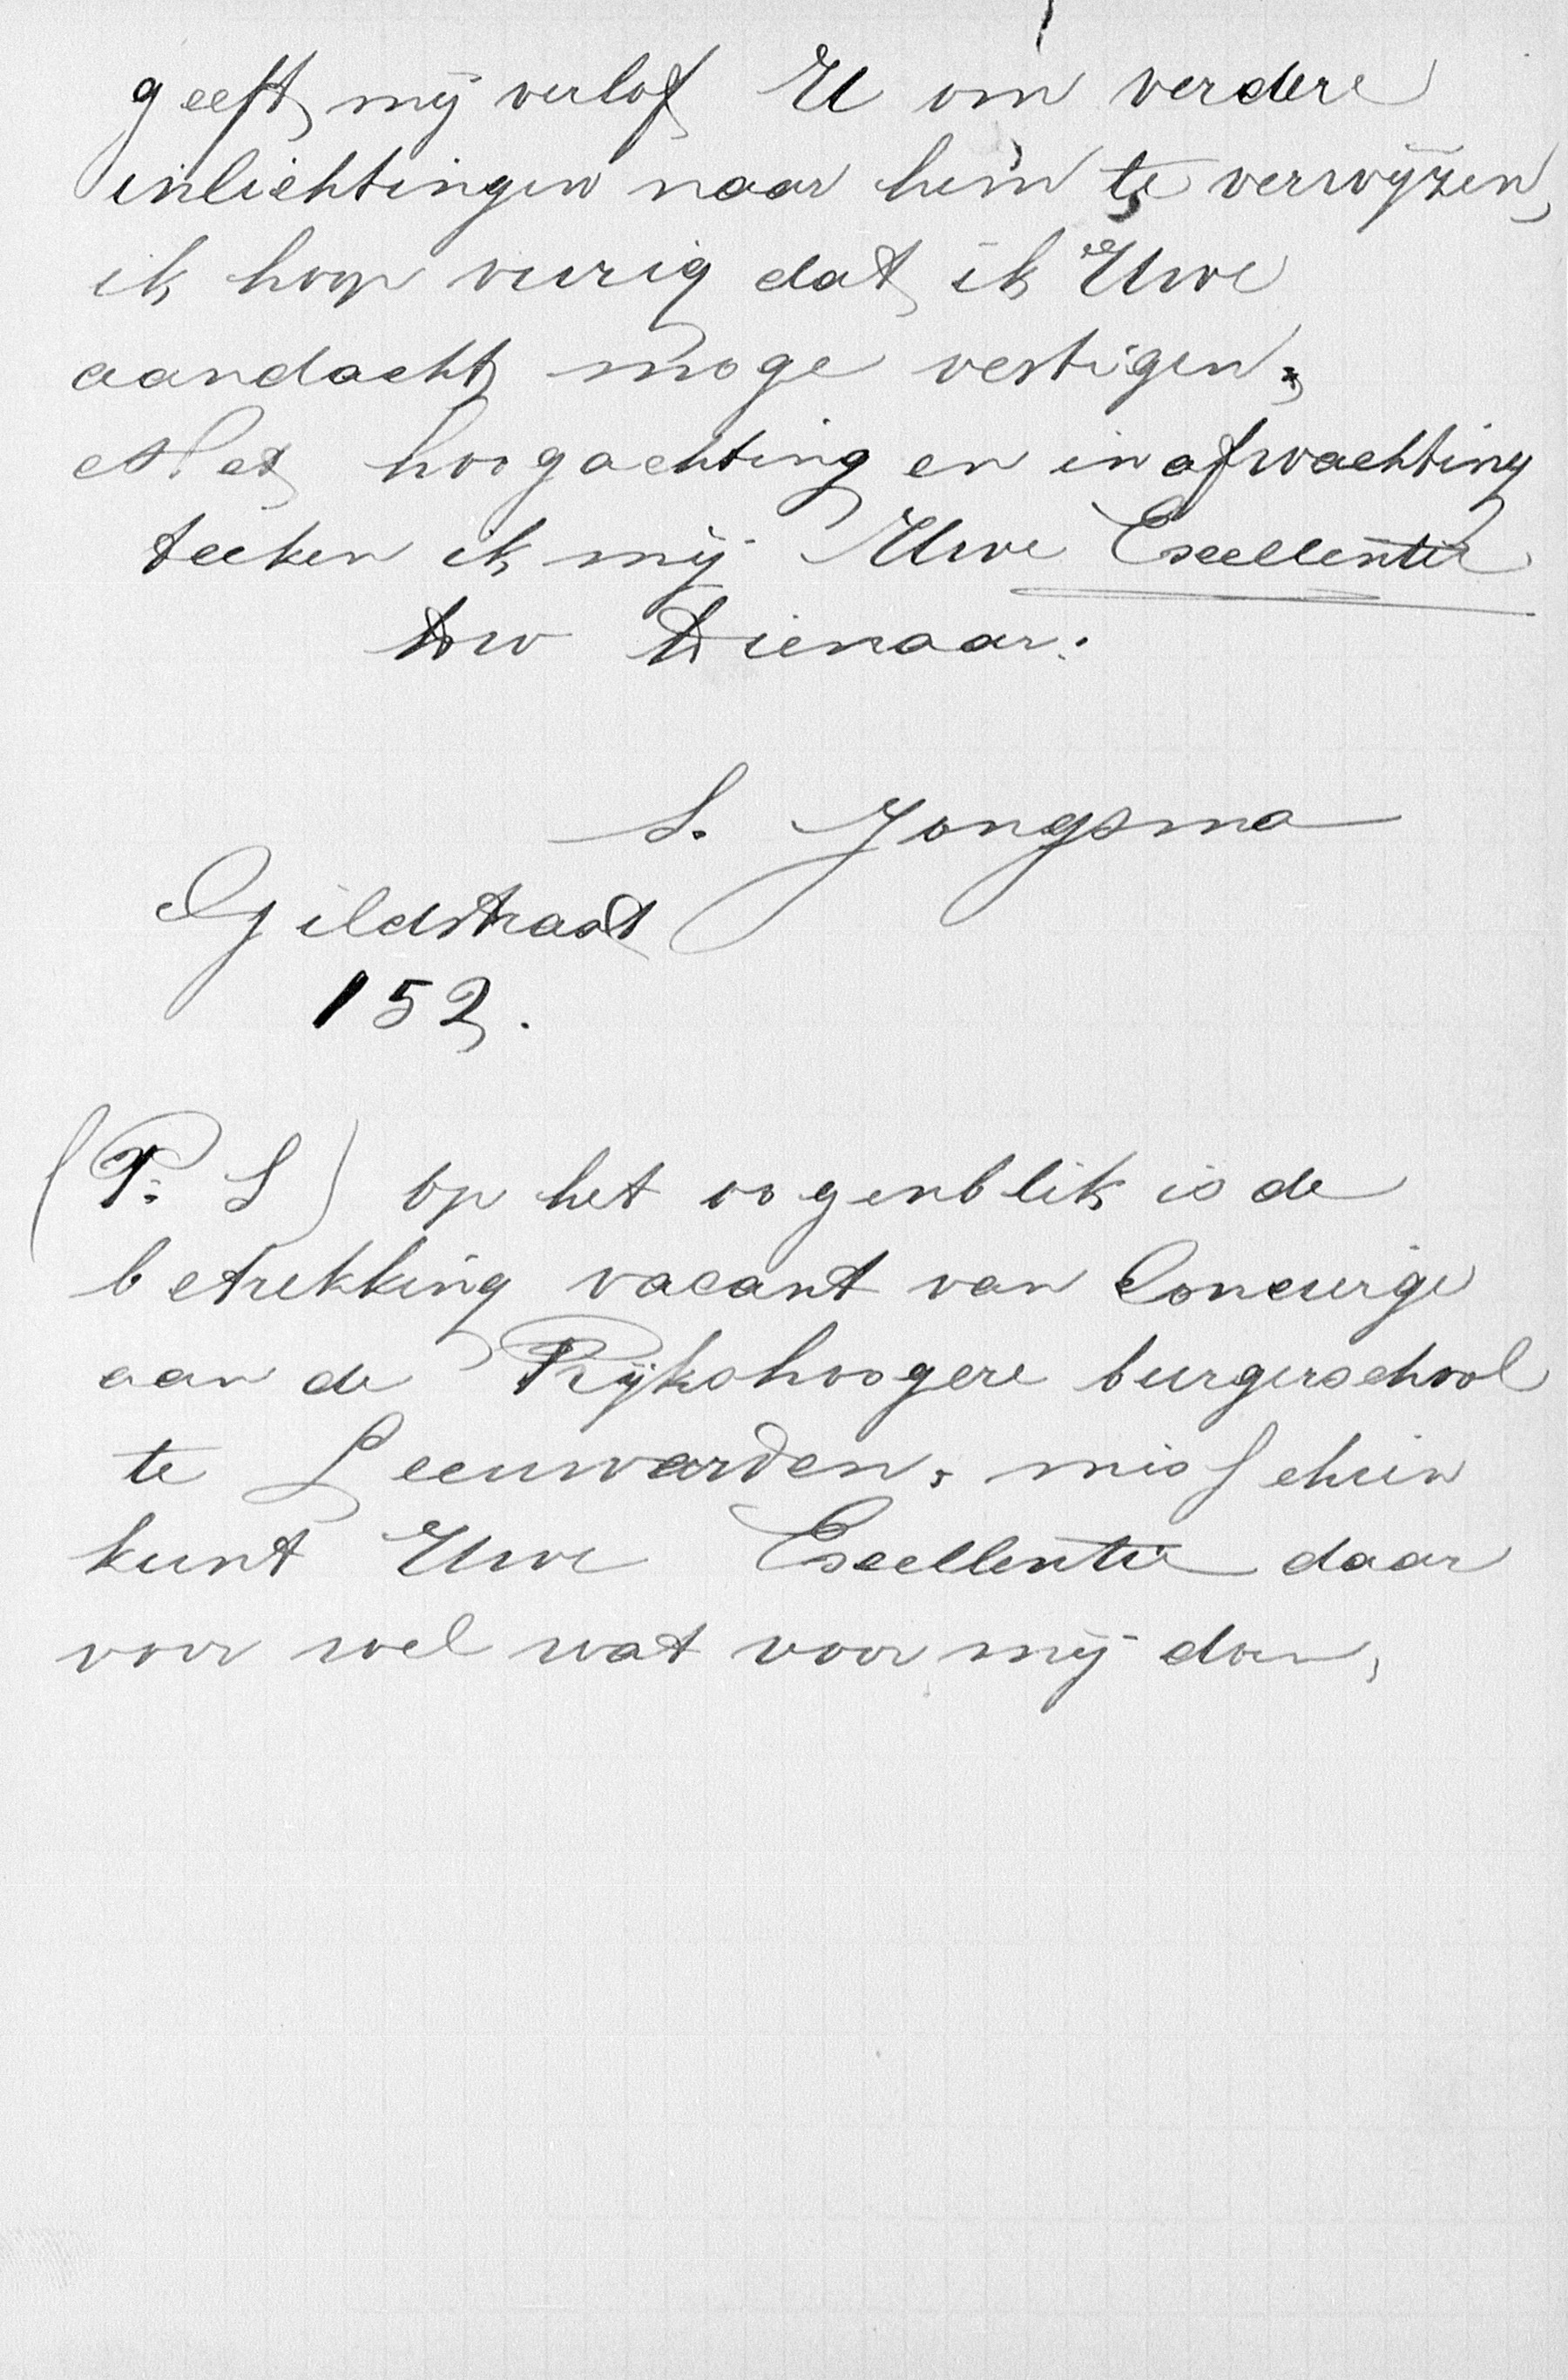 geeft mij verlof U om verdere
inlichtingen naar hem te verwijzen,
ik hoop vurig dat ik Uwe
aandacht moge vestigen.
Met hoogachting en in afwachting
teeken ik mij Uwe Excellentie
Dw Dienaar.
S. Jongsma
Gildstraat
152.
(P. S) op het oogenblik is de
betrekking vacant van Concierge
aan de Rijkshoogere burgerschool
te Leeuwarden, misschien
kunt Uwe Excellentie daar
voor wel wat voor mij doen,